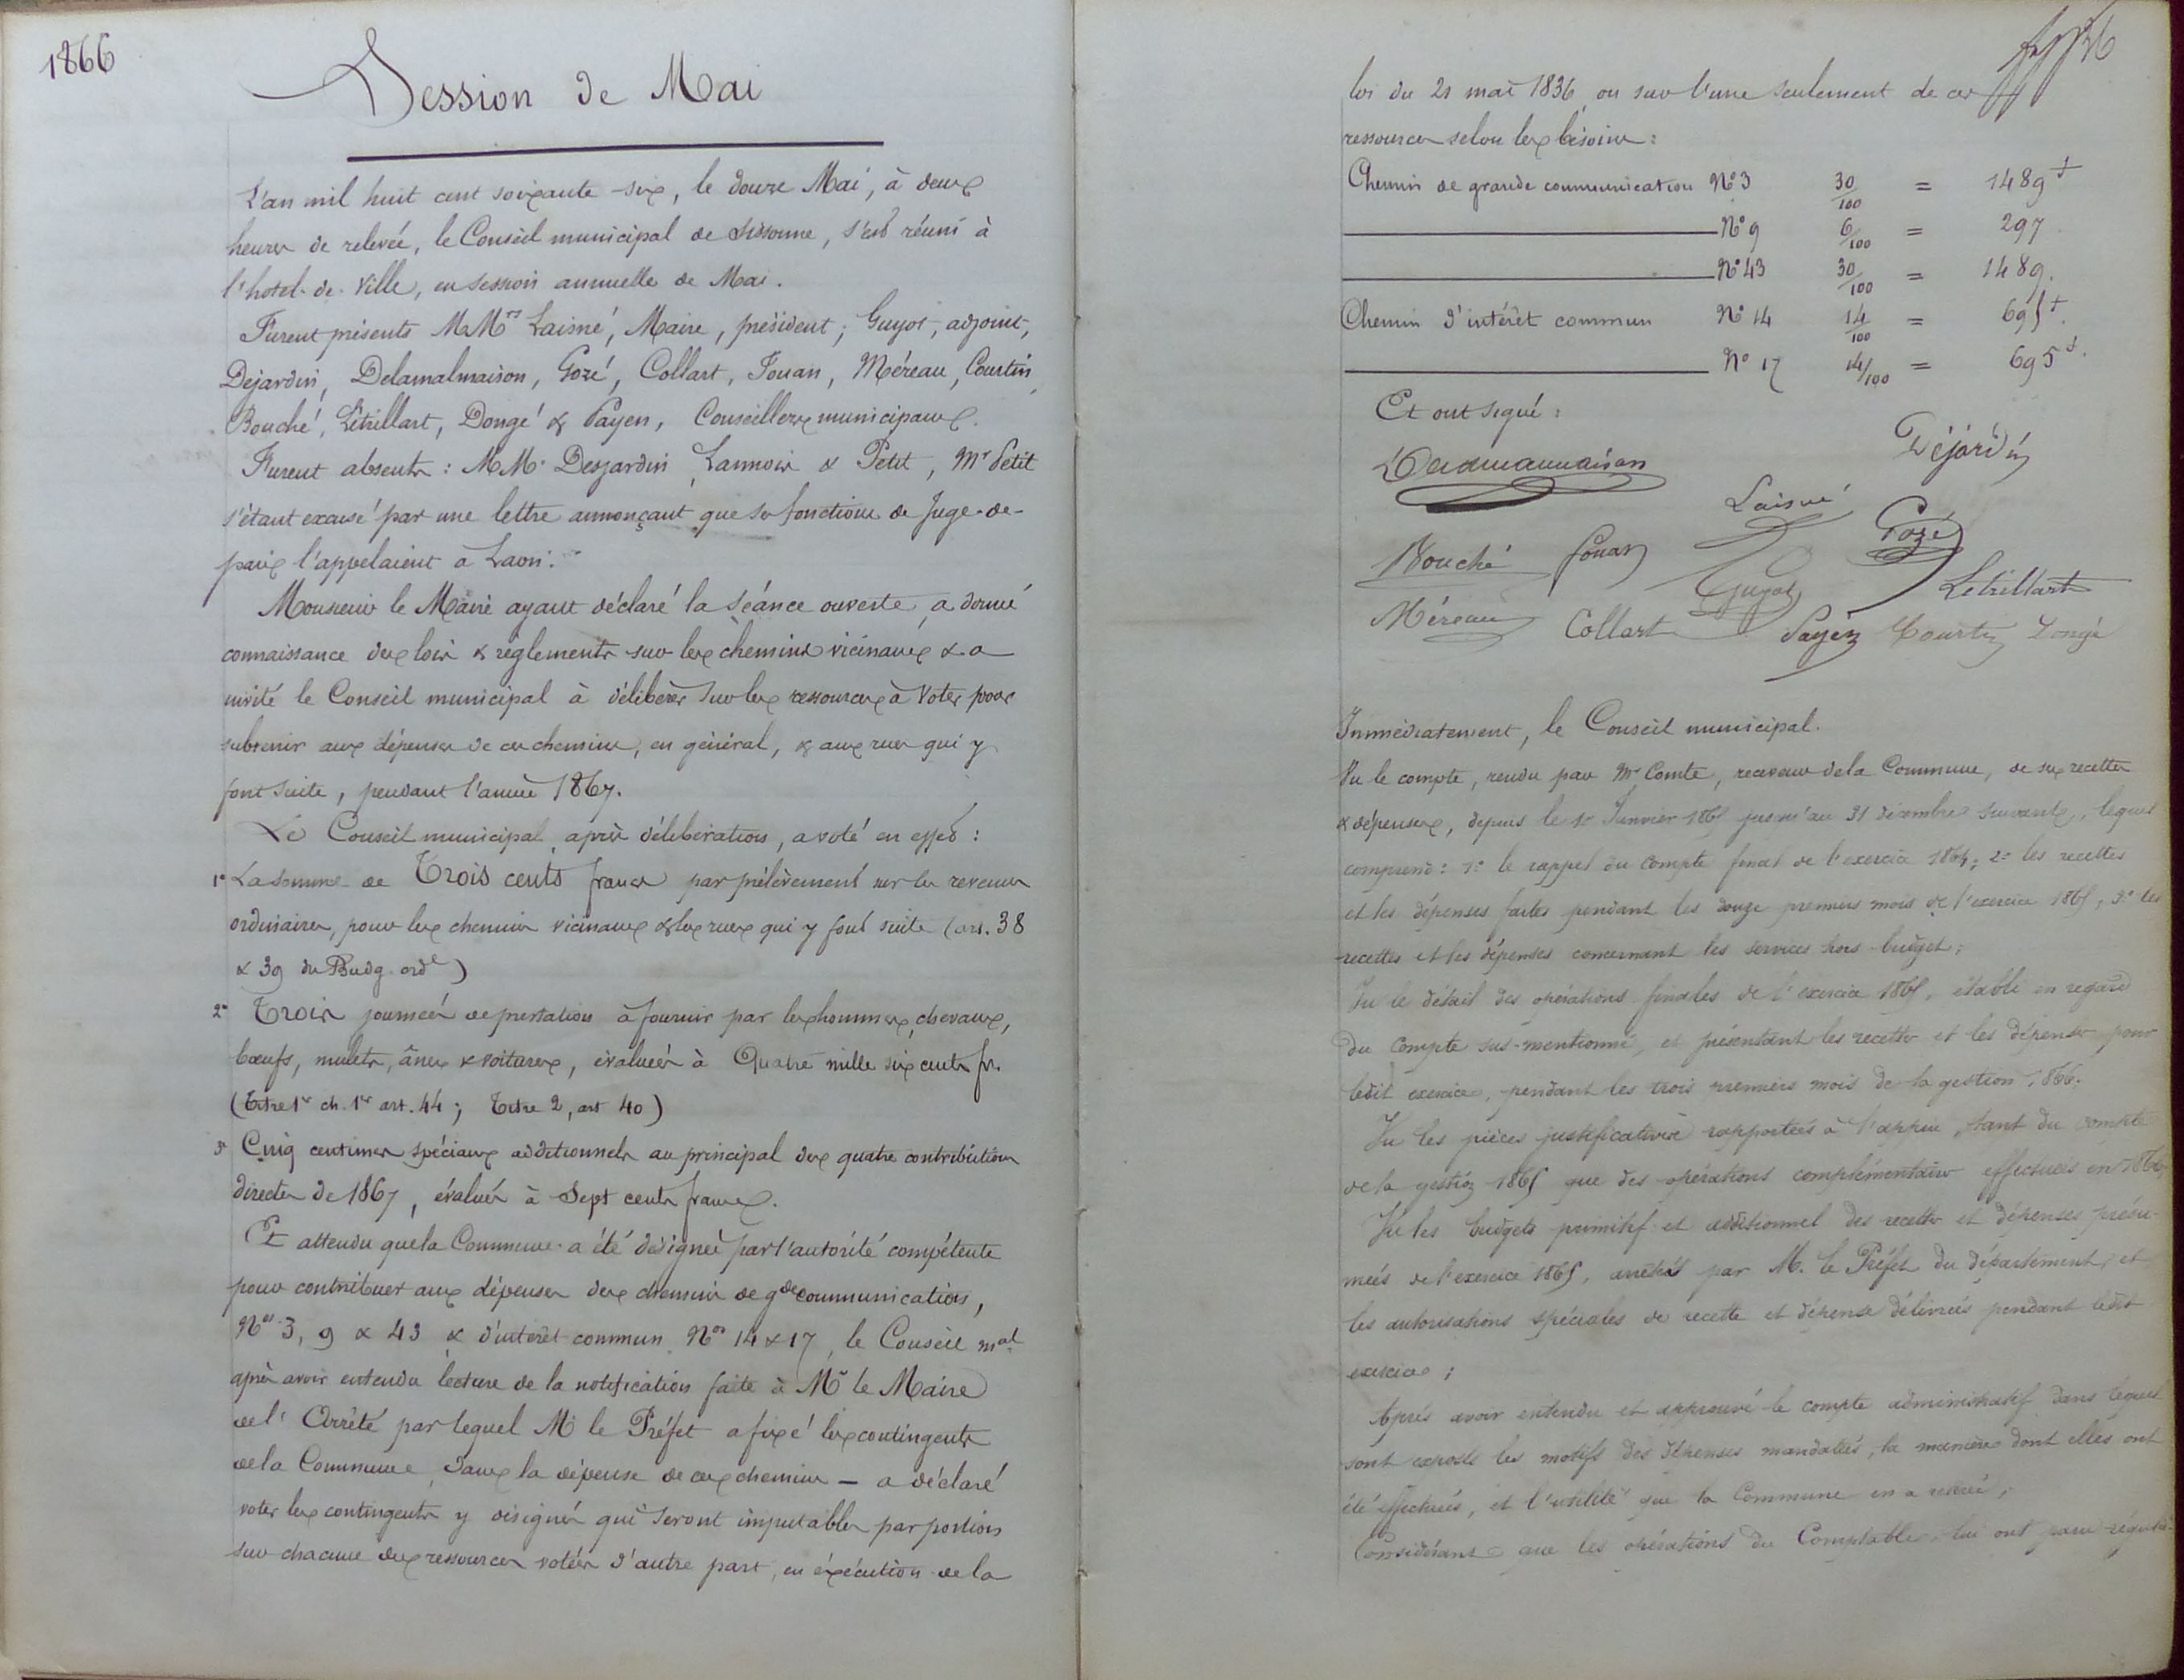 1866
Session de Mai
L'an mil huit cent soixante-six, le douze Mai, à deux
heures de relevée, le Conseil municipal de Sissonne, s'est réuni à
l'hotel-de-Ville, en session annuelle de Mai.
Furent présents MM.rs Laisné, Maire, président; Guyot, adjoint,
Dejardin, Delamalmaison, Gozé, Collart, Jouan, Méreau, Courtin,
Bouché, Létrillart, Dongé & Payen, Conseillers municipaux.
Furent absents : MM. Desjardin, Lannois & Petit, Mr Petit
s'étant excusé par une lettre annonçant que ses fonctions de Juge-de-
paix l'appelaient à Laon.
Monsieur le Maire ayant déclaré la Séance ouverte, a donné
connaissance des lois & règlements sur les chemins vicinaux & a
invité le Conseil municipal à délibérer sur les ressources à Voter pour
subvenir aux dépenses de ces chemins, en général, & aux rues qui y
font suite, pendant l'année 1867.
Le Conseil municipal, après délibération, a voté en effet :
1° La Somme de Trois cents francs par prélèvement sur les revenus
ordinaires, pour les chemins vicinaux & les rues qui y font suite (art. 38
& 39 du Budg. ord.e)
2° Trois journées de prestation à fournir par les hommes, chevaux,
bœufs, mulets, ânes & voitures, évaluées à Quatre mille six cents fr.
(Titre 1er ch. 1er art. 44; Titre 2, art 40)
3° Cinq centimes spéciaux additionnels au principal des quatre contributions
directes de 1867, évalués à Sept cents francs.
Et attendu que la Commune a été désignée par l'autorité compétente
pour contribuer aux dépenses des chemins de gde communication,
Nos 3, 9 & 43 & d'intérêt commun Nos 14 & 17, le Conseil mal
après avoir entendu lecture de la notification faite à Mr le Maire
de l'Arrêté par lequel M. le Préfet a fixé les contingents
de la Commune dans la dépense de ces chemins — a déclaré
voter les contingents y désignés qui seront imputables par portions
sur chacune des ressources votées d'autre part, en exécution de la
36
loi du 21 mai 1836 ou sur l'une seulement de ces
ressources selon les besoins :
Chemin de grande communication N° 3 30/100 = 1489 f
N° 9 6/100 = 297
N° 43 30/100 = 1489.
Chemin d'intérêt commun N° 14 14/100 = 695 f.
N° 17 14/100 = 695 f.
Et ont signé :
Delamalmaison Déjardin
Laisné Gozé
Bouché Jouan Guyot Letrillart
Méreau Collart Payen Courtin Dongé
Immédiatement, le Conseil municipal.
Vu le compte, rendu par Mr Comte, receveur de la Commune, de ses recettes
& dépenses, depuis le 1er Janvier 1865 jusqu'au 31 décembre suivant, lequel
comprend : 1° le rappel du compte final de l'exercice 1864; 2° les recettes
et les dépenses faites pendant les douze premiers mois de l'exercice 1865, 3° les
recettes et les dépenses concernant les services hors-budget;
Vu le détail des opérations finales de l'exercice 1865, établi en regard
du compte sus-mentionné, et présentant les recettes et les dépenses pour
ledit exercice, pendant les trois premiers mois de la gestion 1866.
Vu les pièces justificatives rapportées à l'appui, tant du compte
de la gestion 1865 que des opérations complémentaires effectuées en 1866,
Vu les budgets primitif et additionnel des recettes et dépenses présu-
mées de l'exercice 1865, arrêtés par M. le Préfet du département, et
les autorisations spéciales de recette et dépense délivrées pendant ledit
exercice ;
Après avoir entendu et approuvé le compte administratif dans lequel
sont exposés les motifs des dépenses mandatées, la manière dont elles ont
été effectuées, et l'utilité que la Commune en a retiré,
Considérant que les opérations du Comptable lui ont paru